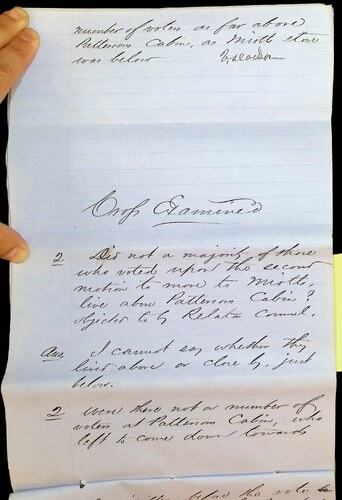 number of voters as far above
Pattersons Cabin, as Miotts store
was below
Cross Examined
2 Did not a majority of those
who voted upon the second
motion to move to Miotts,
live above Pattersons Cabin?
objected to by Relators Counsel.
Ans I cannot say whether they
lived above or close by just
below.
2 were there not a number of
voters at Pattersons Cabin, who
left to come down towards
before the vote